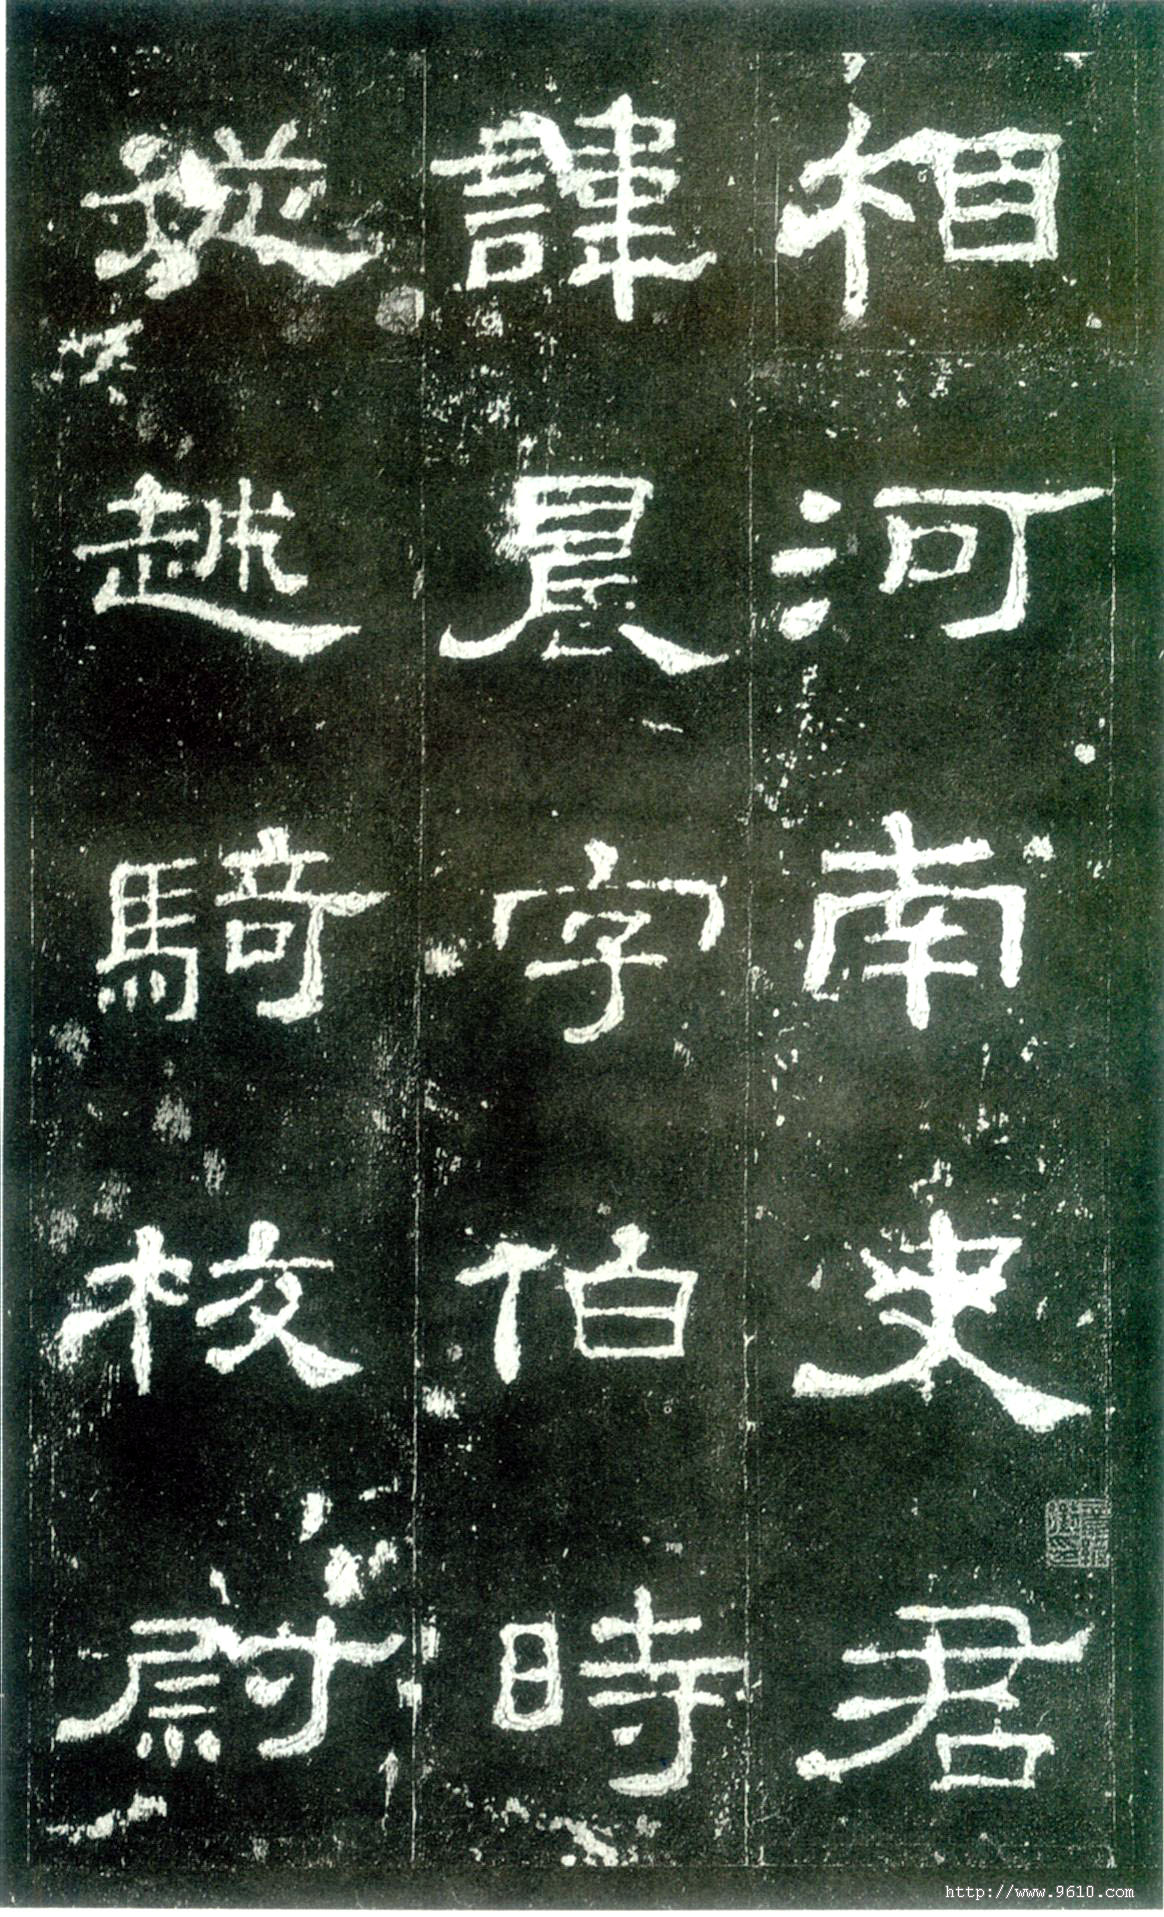 相河南史君
諱晨字伯時
從越騎校尉
http://www.9610.com